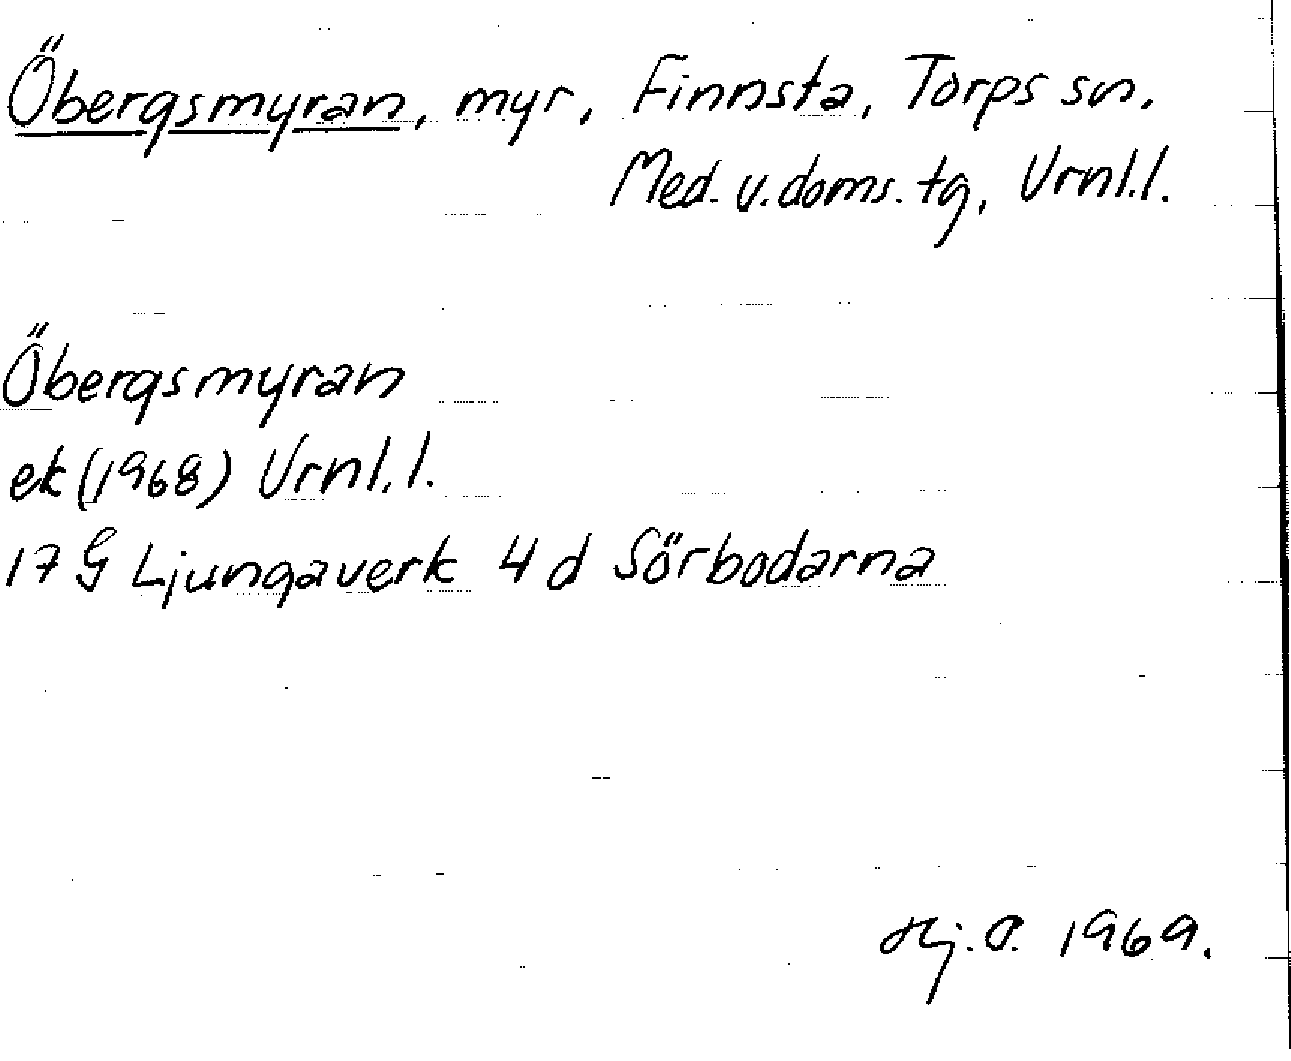 Öbergsmyran, myr, Finnsta, Torps sn.
Med. v. doms. tg, Vrnl.l.
Öbergsmyran
ek (1968) Vrnl.l.
17 G Ljungaverk 4 d Sörbodarna
Hj. O. 1969.